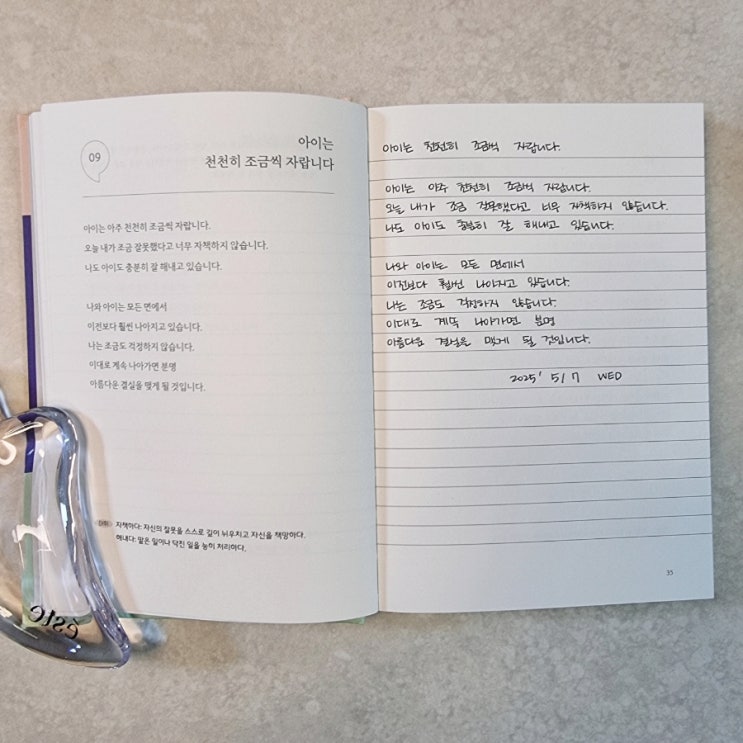 09
아이는
천천히 조금씩 자랍니다
아이는 아주 천천히 조금씩 자랍니다.
오늘 내가 조금 잘못했다고 너무 자책하지 않습니다.
나도 아이도 충분히 잘 해내고 있습니다.
나와 아이는 모든 면에서
이전보다 훨씬 나아지고 있습니다.
나는 조금도 걱정하지 않습니다.
이대로 계속 나아가면 분명
아름다운 결실을 맺게 될 것입니다.
자책하다: 자신의 잘못을 스스로 깊이 뉘우치고 자신을 책망하다.
해내다: 맡은 일이나 닥친 일을 능히 처리하다.
아이는 천천히 조금씩 자랍니다.
아이는 아주 천천히 조금씩 자랍니다.
오늘 내가 조금 잘못했다고 너무 자책하지 않습니다.
나도 아이도 충분히 잘 해내고 있습니다.
나와 아이는 모든 면에서
이전보다 훨씬 나아지고 있습니다.
나는 조금도 걱정하지 않습니다.
이대로 계속 나아가면 분명
아름다운 결실을 맺게 될 것입니다.
2025' 5/7 WED
35
este